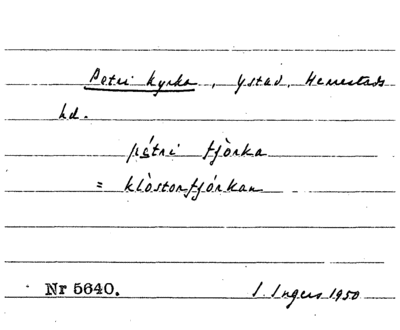 Petri kyrka, Ystad, Herrestads
hd.
pétri tjòrka
= klòstortjórkan
Nr 5640. I. Ingers 1950